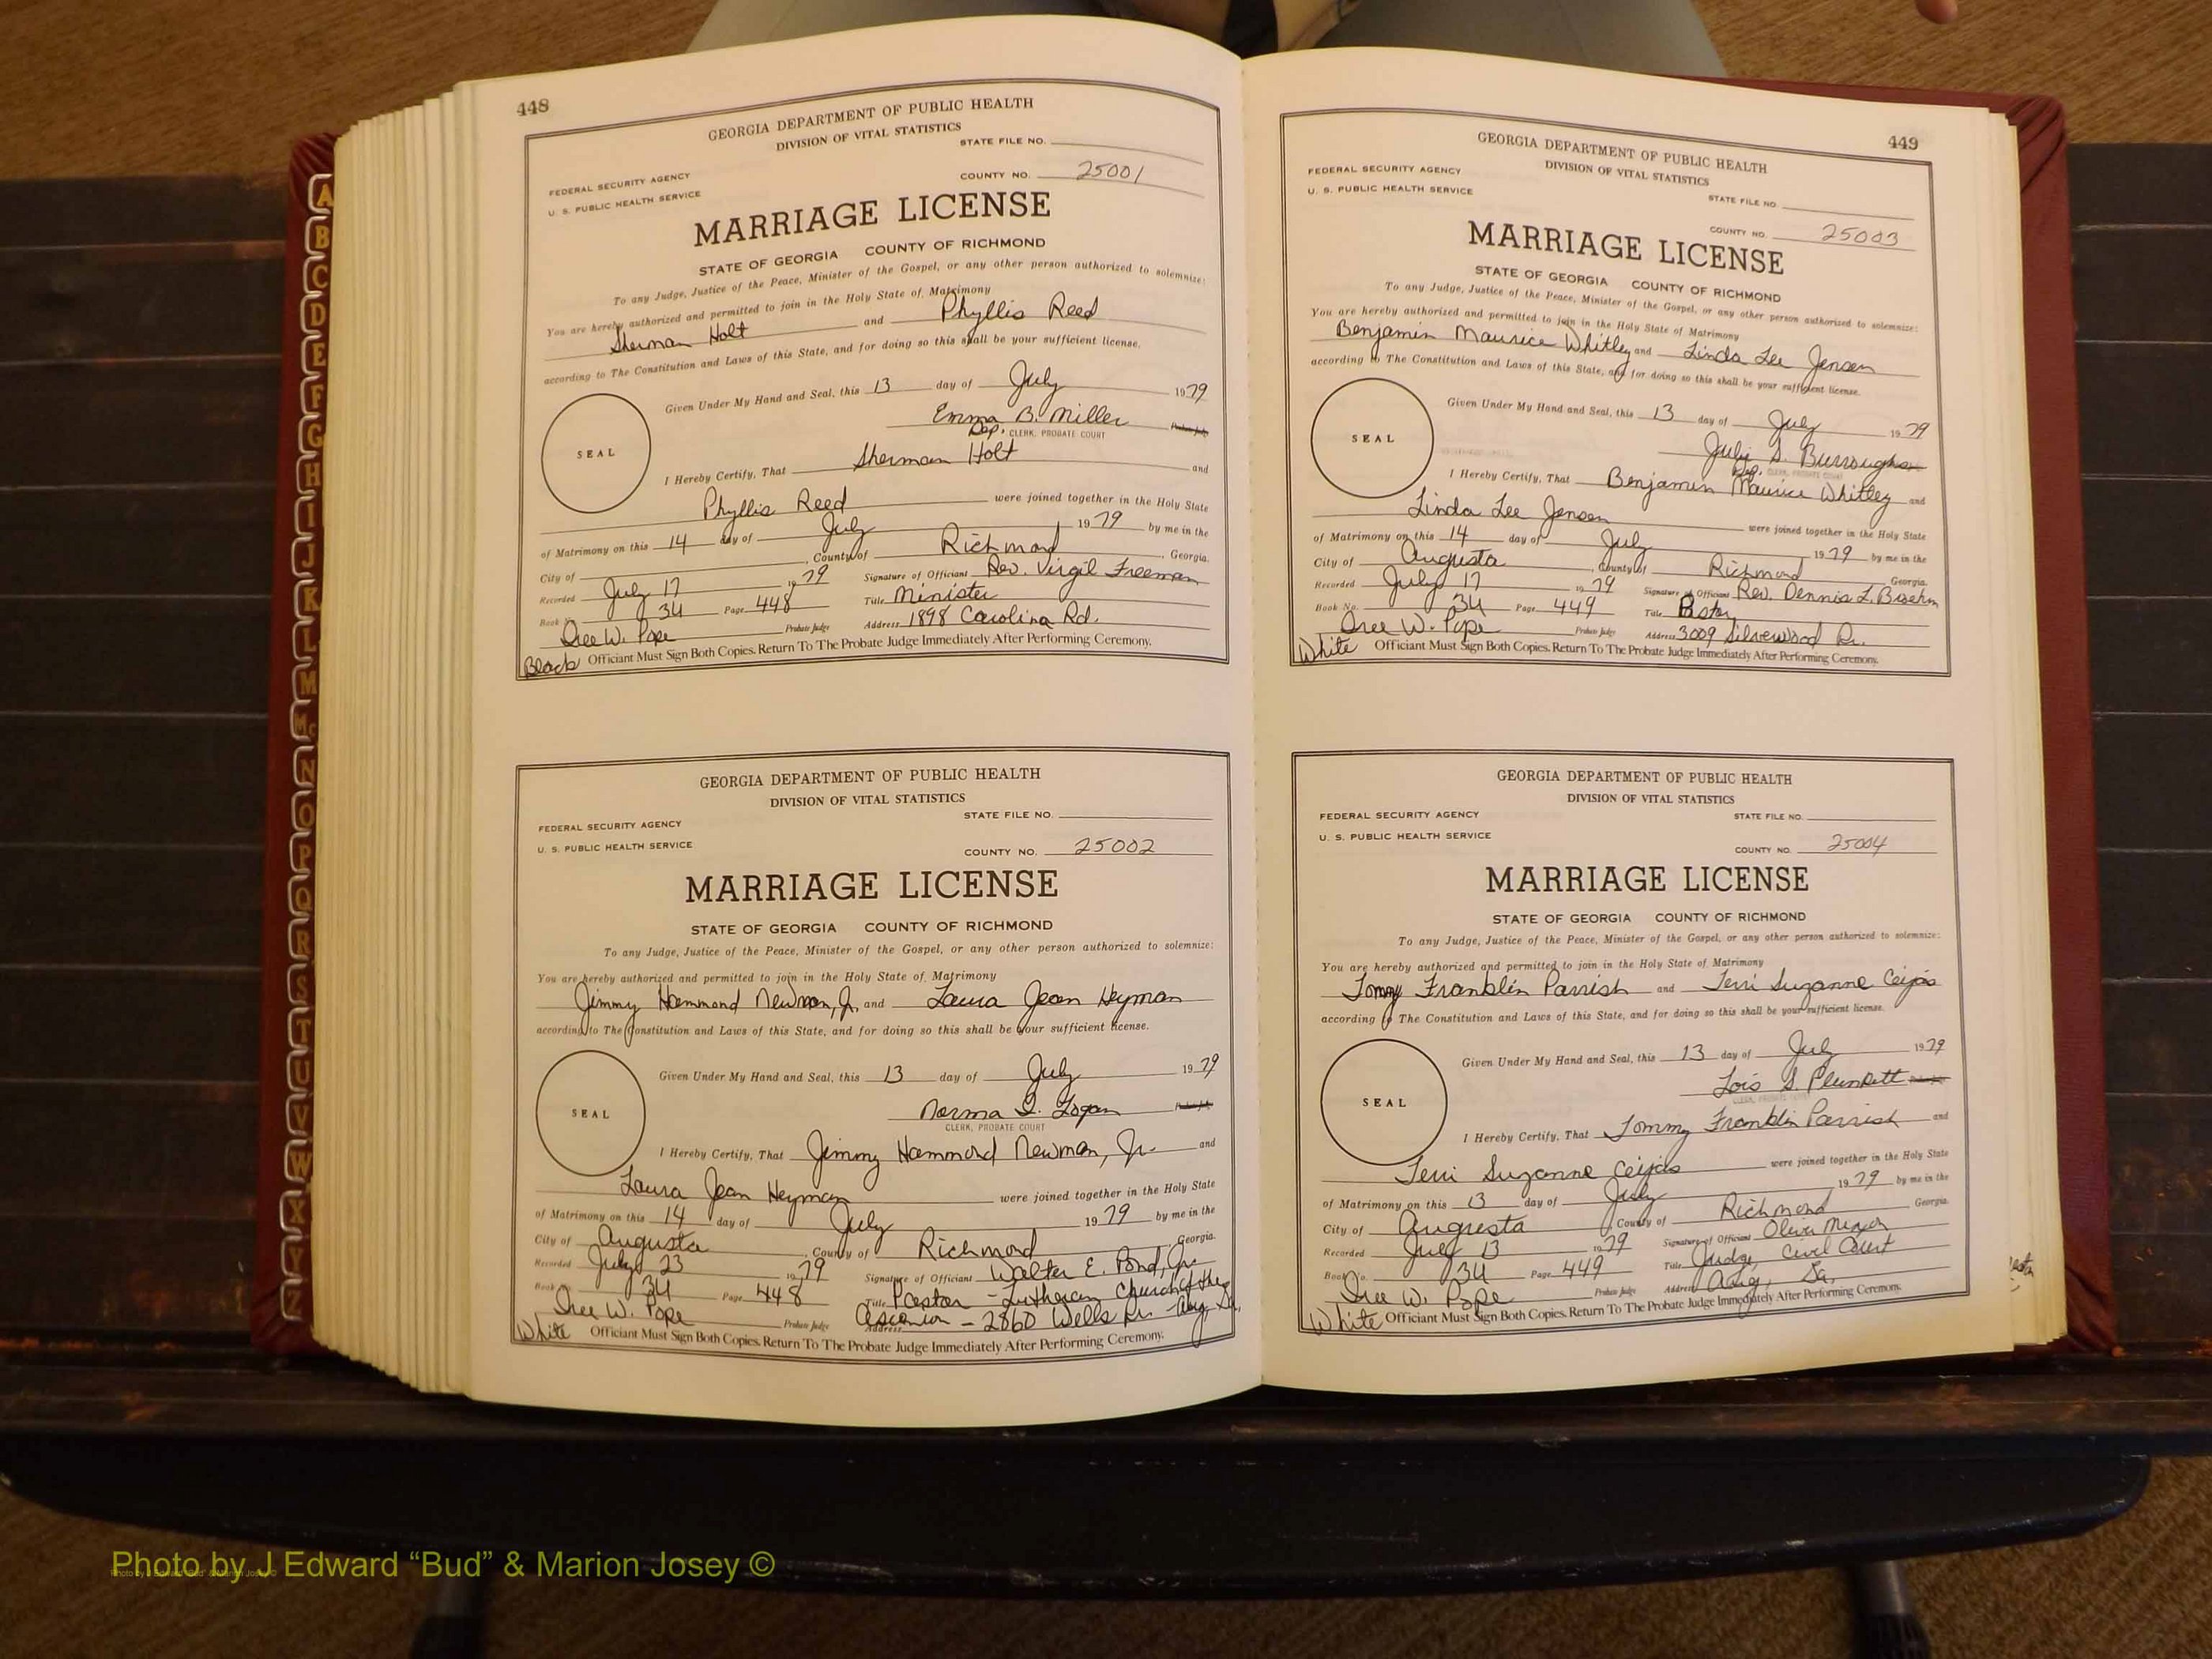 448
GEORGIA DEPARTMENT OF PUBLIC HEALTH
DIVISION OF VITAL STATISTICS
STATE FILE NO.
FEDERAL SECURITY AGENCY
COUNTY NO. 25001
U. S. PUBLIC HEALTH SERVICE
MARRIAGE LICENSE
STATE OF GEORGIA COUNTY OF RICHMOND
To any Judge, Justice of the Peace, Minister of the Gospel, or any other person authorized to solemnize:
You are hereby authorized and permitted to join in the Holy State of Matrimony
Sherman Holt and Phyllis Reed
according to The Constitution and Laws of this State, and for doing so this shall be your sufficient license.
Given Under My Hand and Seal, this 13 day of July 1979
Emma B. Miller Probate Judge
Dep. CLERK, PROBATE COURT
SEAL
I Hereby Certify, That Sherman Holt and
Phyllis Reed were joined together in the Holy State
of Matrimony on this 14 day of July 1979 by me in the
City of , County of Richmond , Georgia.
Recorded July 17 1979 Signature of Officiant Rev. Virgil Freeman
Book No. 34 Page 448 Title Minister
Dree W. Pope Probate Judge Address 1898 Carolina Rd.
Black Officiant Must Sign Both Copies. Return To The Probate Judge Immediately After Performing Ceremony.
GEORGIA DEPARTMENT OF PUBLIC HEALTH
DIVISION OF VITAL STATISTICS
STATE FILE NO.
FEDERAL SECURITY AGENCY
U. S. PUBLIC HEALTH SERVICE
COUNTY NO. 25002
MARRIAGE LICENSE
STATE OF GEORGIA COUNTY OF RICHMOND
To any Judge, Justice of the Peace, Minister of the Gospel, or any other person authorized to solemnize:
You are hereby authorized and permitted to join in the Holy State of Matrimony
Jimmy Hammond Newman, Jr. and Laura Jean Heyman
according to The Constitution and Laws of this State, and for doing so this shall be your sufficient license.
Given Under My Hand and Seal, this 13 day of July 1979
Norma I. Logan Probate Judge
CLERK, PROBATE COURT
SEAL
I Hereby Certify, That Jimmy Hammond Newman, Jr. and
Laura Jean Heyman were joined together in the Holy State
of Matrimony on this 14 day of July 1979 by me in the
City of Augusta , County of Richmond , Georgia.
Recorded July 23 1979 Signature of Officiant Walter E. Pond, Jr.
Book No. 34 Page 448 Title Pastor - Lutheran Church of the
Dree W. Pope Probate Judge Address Ascension - 2860 Wells Dr - Aug, Ga.
White Officiant Must Sign Both Copies. Return To The Probate Judge Immediately After Performing Ceremony.
449
GEORGIA DEPARTMENT OF PUBLIC HEALTH
DIVISION OF VITAL STATISTICS
FEDERAL SECURITY AGENCY
U. S. PUBLIC HEALTH SERVICE
STATE FILE NO.
COUNTY NO. 25003
MARRIAGE LICENSE
STATE OF GEORGIA COUNTY OF RICHMOND
To any Judge, Justice of the Peace, Minister of the Gospel, or any other person authorized to solemnize:
You are hereby authorized and permitted to join in the Holy State of Matrimony
Benjamin Maurice Whitley and Linda Lee Jensen
according to The Constitution and Laws of this State, and for doing so this shall be your sufficient license.
Given Under My Hand and Seal, this 13 day of July 1979
July S. Burroughs
Dep. CLERK, PROBATE COURT
SEAL
I Hereby Certify, That Benjamin Maurice Whitley and
Linda Lee Jensen were joined together in the Holy State
of Matrimony on this 14 day of July 1979 by me in the
City of Augusta , County of Richmond Georgia.
Recorded July 17 1979 Signature of Officiant Rev. Dennis L. Boehm
Book No. 34 Page 449 Title Pastor
Dree W. Pope Probate Judge Address 3009 Silverwood Dr.
White Officiant Must Sign Both Copies. Return To The Probate Judge Immediately After Performing Ceremony.
GEORGIA DEPARTMENT OF PUBLIC HEALTH
DIVISION OF VITAL STATISTICS
FEDERAL SECURITY AGENCY
STATE FILE NO.
U. S. PUBLIC HEALTH SERVICE
COUNTY NO. 25004
MARRIAGE LICENSE
STATE OF GEORGIA COUNTY OF RICHMOND
To any Judge, Justice of the Peace, Minister of the Gospel, or any other person authorized to solemnize:
You are hereby authorized and permitted to join in the Holy State of Matrimony
Tommy Franklin Parrish and Terri Suzanne Ceijas
according to The Constitution and Laws of this State, and for doing so this shall be your sufficient license.
Given Under My Hand and Seal, this 13 day of July 1979
Lois S. Plunkett Probate Judge
CLERK, PROBATE COURT
SEAL
I Hereby Certify, That Tommy Franklin Parrish and
Terri Suzanne Ceijas were joined together in the Holy State
of Matrimony on this 13 day of July 1979 by me in the
City of Augusta , County of Richmond Georgia.
Recorded July 13 1979 Signature of Officiant Oliver Mixon
Book No. 34 Page 449 Title Judge, Civil Court
Dree W. Pope Probate Judge Address Aug, Ga,
White Officiant Must Sign Both Copies. Return To The Probate Judge Immediately After Performing Ceremony.
A
B
C
D
E
F
G
H
I
J
K
L
M
Mc
N
O
P
Q
R
S
T
U
V
W
X
Y
Z
Photo by J Edward “Bud” & Marion Josey ©
Photo by J Edward “Bud” & Marion Josey ©